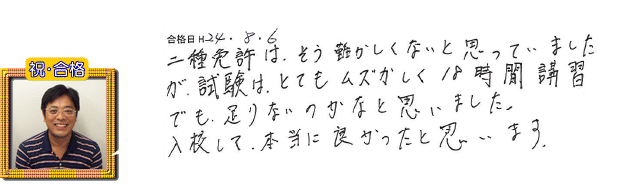 合格日 H24・8・6
二種免許は、そう難かしくないと思っていました
が、試験は、とてもムズかしく18時間講習
でも、足りないのかなと思いました。
入校して、本当に良かったと思います。
祝・合格